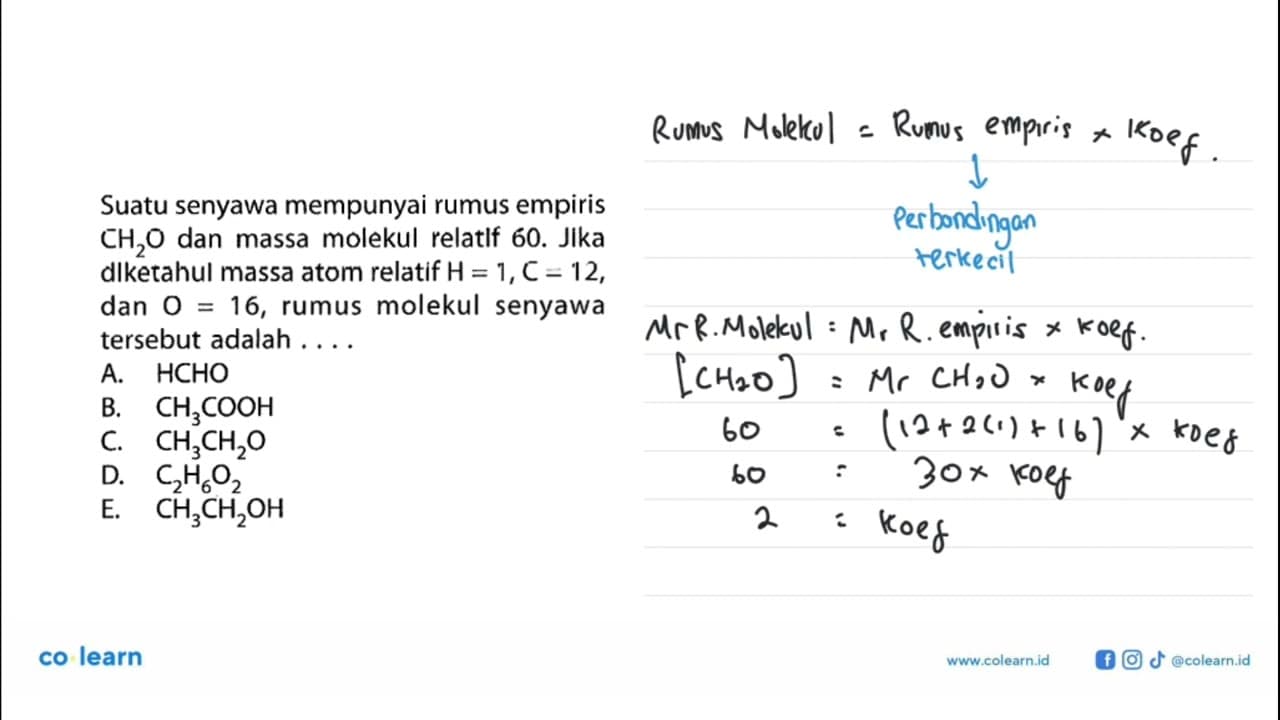 Suatu senyawa mempunyai rumus empiris
CH₂O dan massa molekul relatIf 60. JIka
dIketahul massa atom relatif H = 1, C = 12,
dan O = 16, rumus molekul senyawa
tersebut adalah . . . .
A. HCHO
B. CH₃COOH
C. CH₃CH₂O
D. C₂H₆O₂
E. CH₃CH₂OH
Rumus Molekul = Rumus empiris × Koef.
↓
Perbandingan
terkecil
Mr R.Molekul = Mr R. empiris × koef.
[CH₂O] = Mr CH₂O × koef
60 = (12 + 2(1) + 16) × koef
60 = 30 × koef
2 = koef
co learn
www.colearn.id
@colearn.id